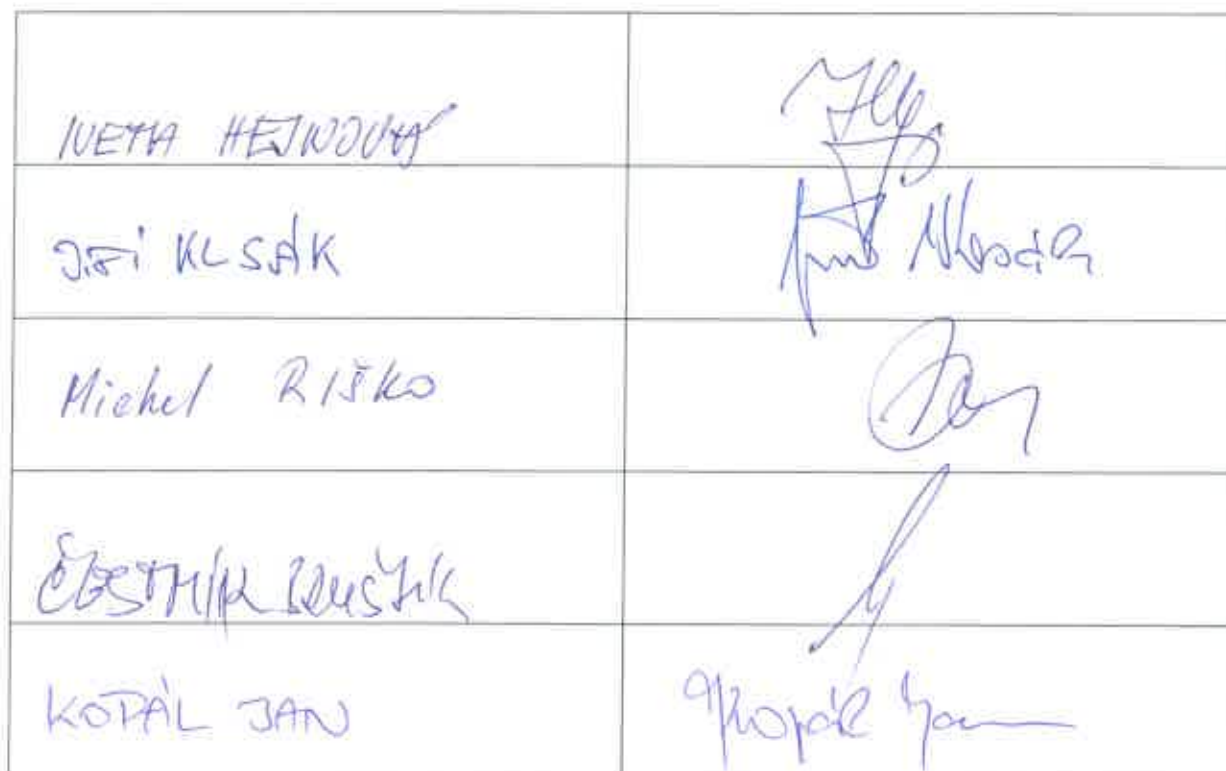 IVETA HEJNOVÁ
JIŘÍ KLSÁK Jiří Klsák
Michel RIŠKO
ČESTMÍR BRUŠTÍK
KOPÁL JAN Kopál Jan